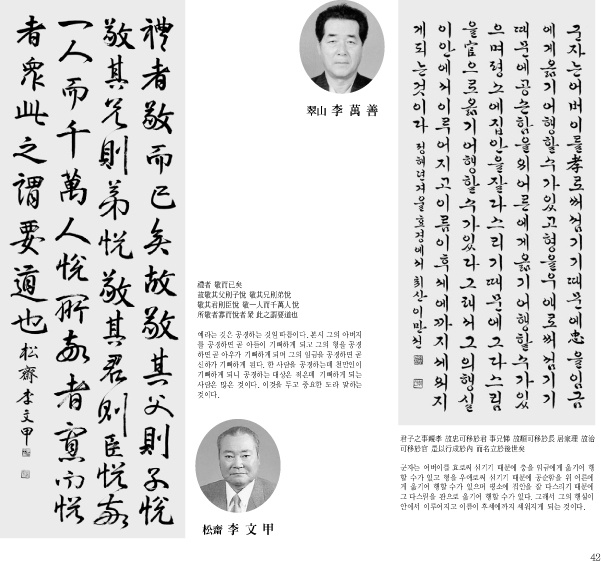 禮者敬而已矣故敬其父則子悅
敬其兄則弟悅敬其君則臣悅敬
一人而千萬人悅所敬者寡而悅
者衆此之謂要道也 松齋李文甲
翠山 李 萬 善
禮者 敬而已矣
故敬其父則子悅 敬其兄則弟悅
敬其君則臣悅 敬一人而千萬人悅
所敬者寡而悅者衆 此之謂要道也
예라는 것은 공경하는 것일 따름이다. 본시 그의 아버지
를 공경하면 곧 아들이 기뻐하게 되고 그의 형을 공경
하면 곧 아우가 기뻐하게 되며 그의 임금을 공경하면 곧
신하가 기뻐하게 된다. 한 사람을 공경하는데 천만인이
기뻐하게 되니 공경하는 대상은 적은데 기뻐하게 되는
사람은 많은 것이다. 이것을 두고 중요한 도라 말하는
것이다.
松齋 李 文 甲
군자는어버이를孝로써섬기기때문에忠을임금
에게옮기어행할수가있고형을우애로써섬기기
때문에공손함을위어른에게옮기어행할수가있
으며평소에집안을잘다스리기때문에그다스림
을官으로옮기어행할수가있다그래서그의행실
이안에서이루어지고이름이후세에까지세워지
게되는것이다 정해년겨울효경에서 취산이만선
君子之事親孝 故忠可移於君 事兄悌 故順可移於長 居家理 故治
可移於官 是以行成於內 而名立於後世矣
군자는 어버이를 효로써 섬기기 때문에 충을 임금에게 옮기어 행
할 수가 있고 형을 우애로써 섬기기 때문에 공손함을 위 어른에
게 옮기어 행할 수가 있으며 평소에 집안을 잘 다스리기 때문에
그 다스림을 관으로 옮기어 행할 수가 있다. 그래서 그의 행실이
안에서 이루어지고 이름이 후세에까지 세워지게 되는 것이다.
42